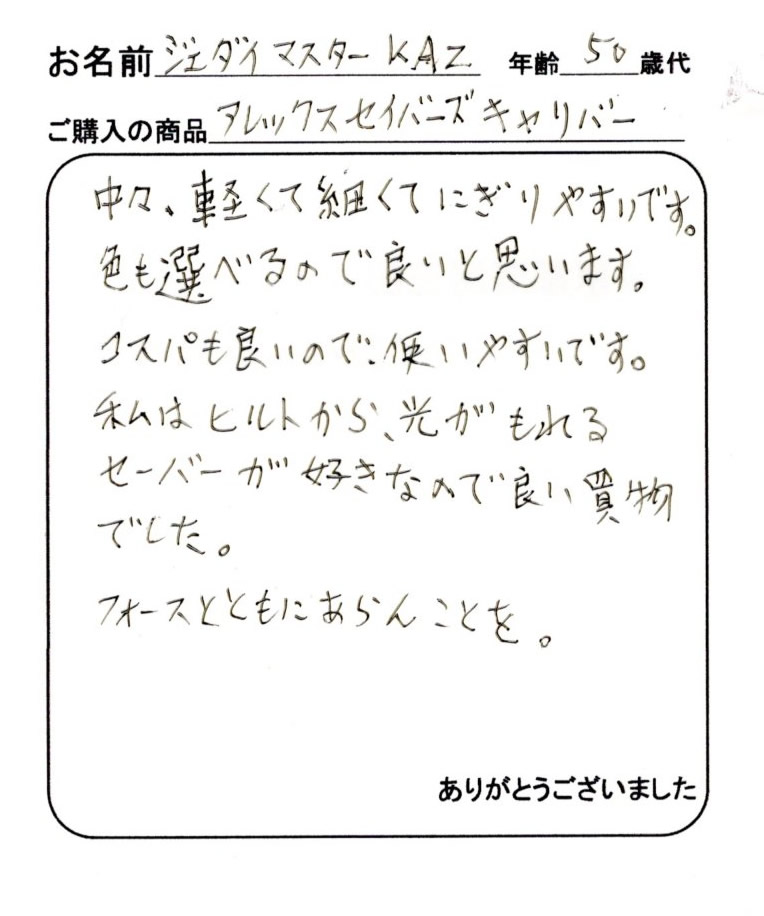 お名前 ジェダイマスターKAZ 年齢 50 歳代
ご購入の商品 アレックスセイバーズキャリバー
中々、軽くて細くてにぎりやすいです。
色も選べるので良いと思います。
コスパも良いので、使いやすいです。
私はヒルトから、光がもれる
セーバーが好きなので良い買物
でした。
フォースとともにあらんことを。
ありがとうございました